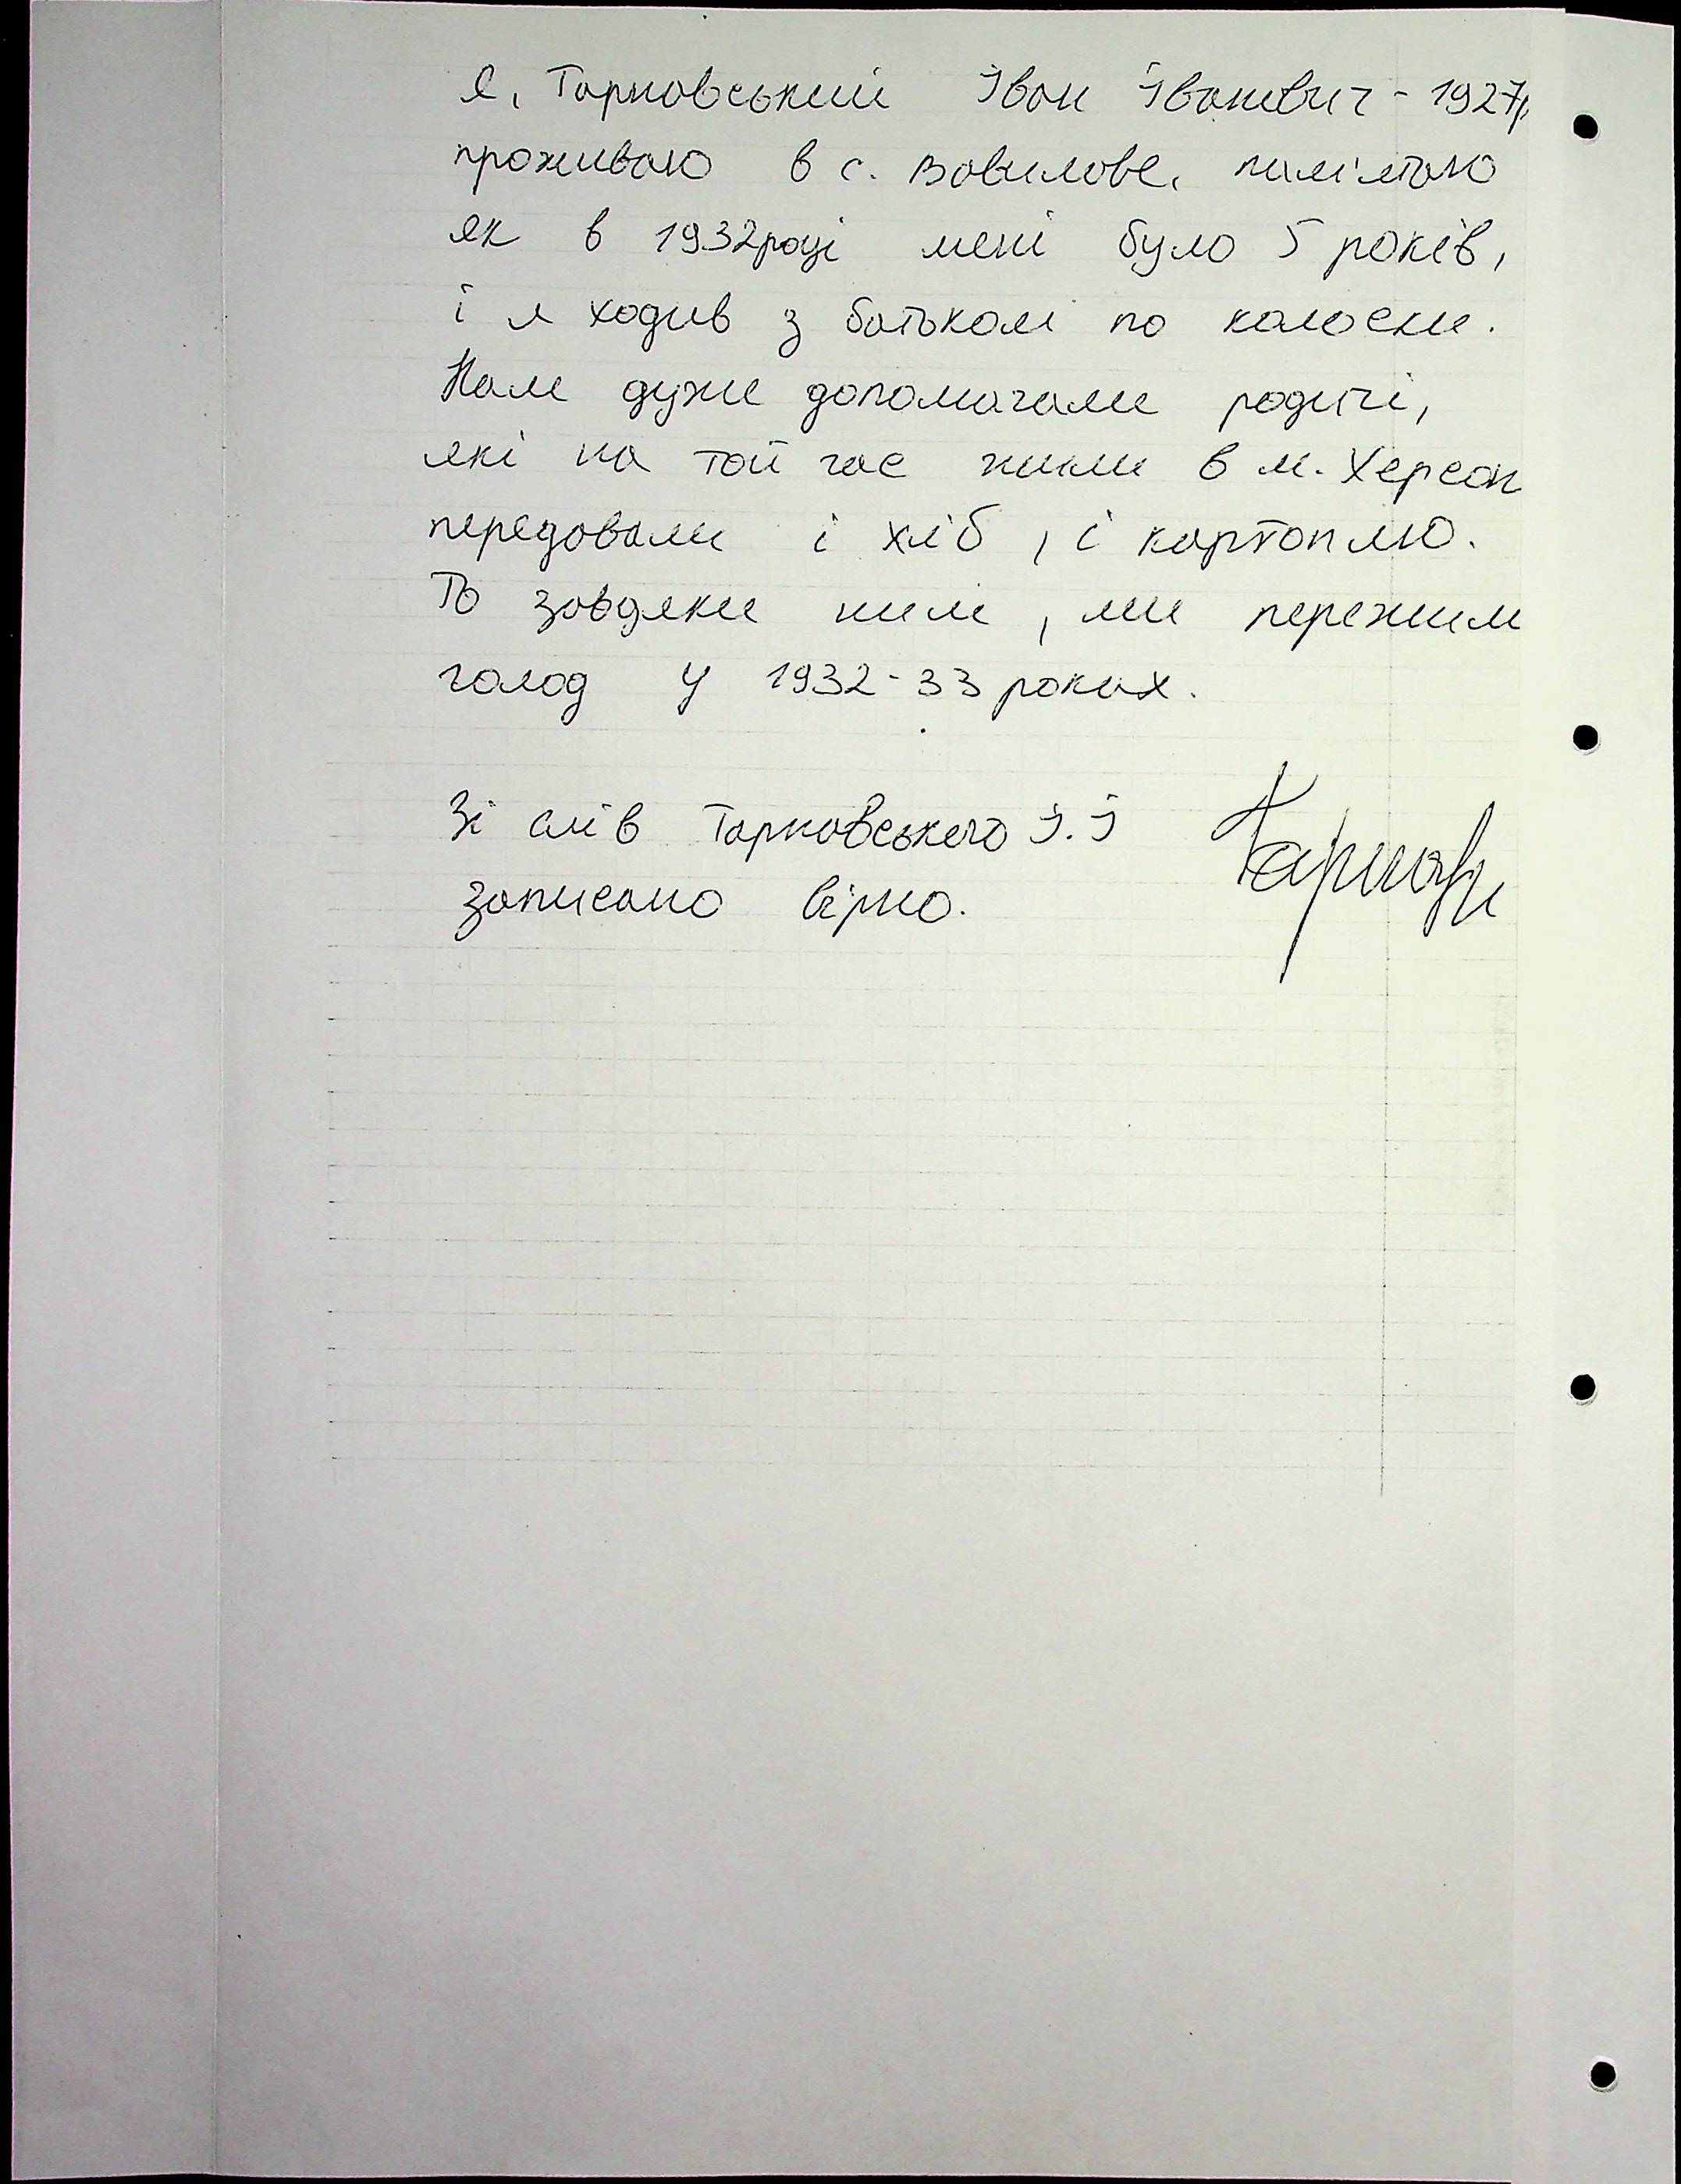 Я, Тарновський Іван Іванович - 1927р,
проживаю в с. Вавилове, пам'ятаю
як в 1932році мені було 5 років,
і я ходив з батьком по колоски.
Нам дуже допомагали родичі,
які на той час жили в м. Херсон
передавали і хліб, і картоплю.
То завдяки ним, ми пережили
голод у 1932-33 роках.
Зі слів Тарновського І.І
записано вірно.